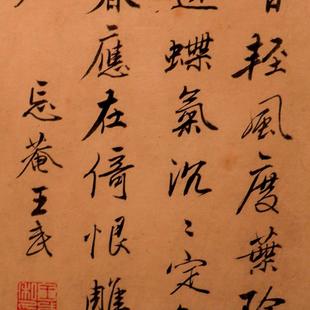 輕風度葉
蝶氣沉沉定
應在倚恨雕
忘菴王武